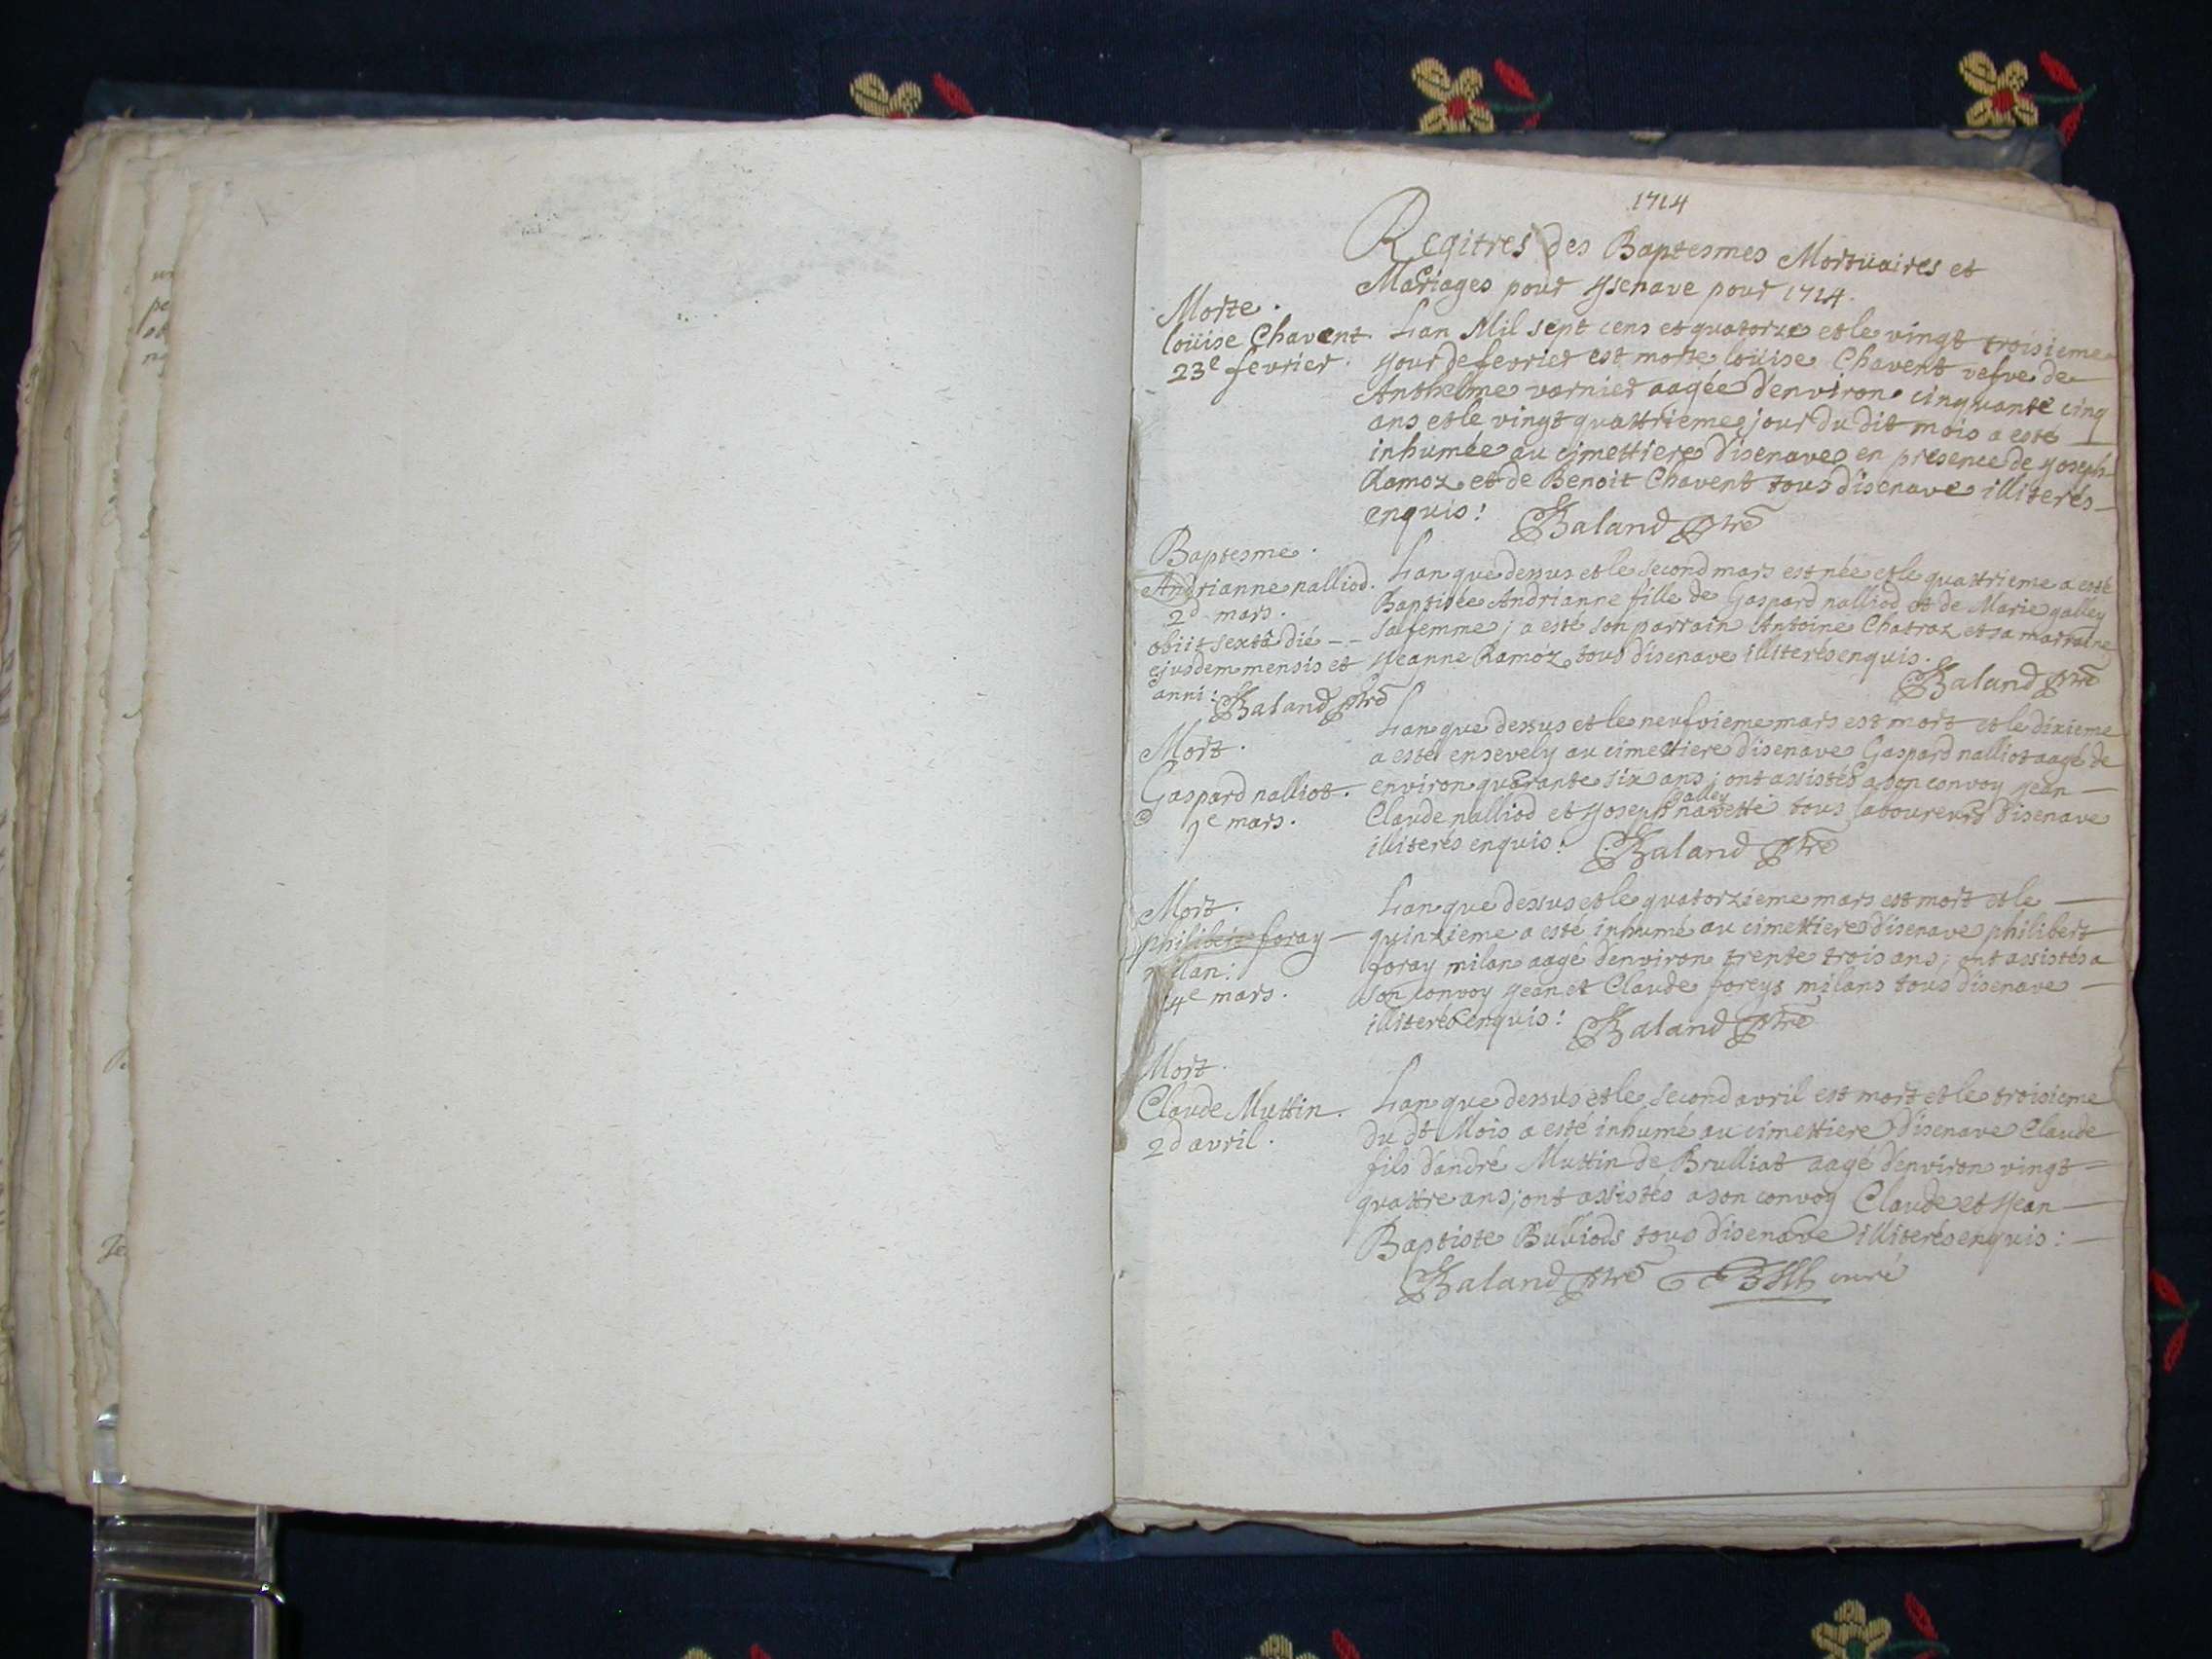 1714
Regitres des Baptesmes Mortuaires et
Mariages pour ysenave pour 1714.
Morte.
loüise Chavent.
23e fevrier.
Lan Mil sept cens et quatorze et le vingt troisieme
your de fevrier est morte loüise Chavent vefve de
Anthelme varnier aagée d'environ cinquante cinq
ans et le vingt quattrieme jour du dit mois a esté
inhumée au cimettiere disenave en presence de yoseph
Ramoz et de Benoit Chavent tous disenave illiterés
enquis! Baland ptre
Baptesme.
Andrianne nalliod.
2d mars.
obiit sextâ dié
ejusdem mensis et
anni: Baland ptre
Lan que dessus et le second mars est née et le quattrieme a esté
Baptisée Andrianne fille de Gaspard nalliod et de Marie galley
sa femme; a esté son parrain Antoine Chatraz et sa marraine
yeanne Ramoz tous disenave illiterés enquis.
Baland ptre
Mort.
Gaspard nalliot.
9e mars.
Lan que dessus et le neufvieme mars est mort et le dixieme
a esté ensevely au cimettiere disenave Gaspard nalliot aagé de
environ quarante six ans; ont assistés a son convoy yean
galley
Claude nalliod et yoseph navette tous laboureurs disenave
illiterés enquis: Baland ptre
Mort.
philibert foray
milan:
14e mars.
Lan que dessus et le quatorzieme mars est mort et le
quinzieme a esté inhumé au cimettiere disenave philibert
foray milan aagé d'environ trente trois ans; ont assistés a
son convoy yean et Claude foreys milans tous disenave
illiterés enquis: Baland ptre
Mort.
Claude Muttin.
2d avril.
Lan que dessus et le second avril est mort et le troisieme
du dt Mois a esté inhumé au cimettiere disenave Claude
fils d'andré Muttin de Brulliat aagé d'environ vingt
quattre ans; ont assistés a son convoy Claude et yean
Baptiste Bulliods tous disenave illiterés enquis:
Baland ptre curé